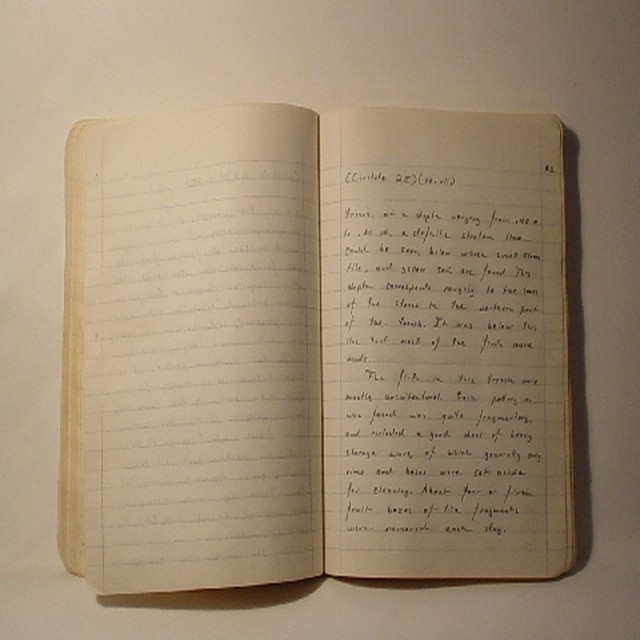 trench, at a depth varying from .45 m
to .50 m a definite stratum line
could be seen below which small stones
tile, and green soil are found. This
depth corresponds roughly to the tops
of the stones in the northern part
of the trench. It was below this
line that most of the finds were
made.
The finds in this trench were
mostly unstratified. Such pottery as
was found was quite fragmentary,
and included a good deal of heavy
storage ware of which generally only
rims and bases were set aside
for cleaning. About four or five
fruit boxes of tile fragments
were removed each day.